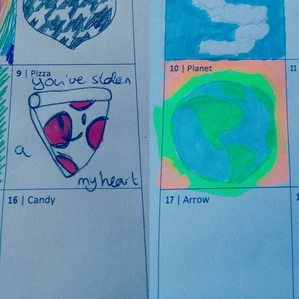 9 | Pizza
you've stolen
a
my heart
10 | Planet
11
16 | Candy
17 | Arrow